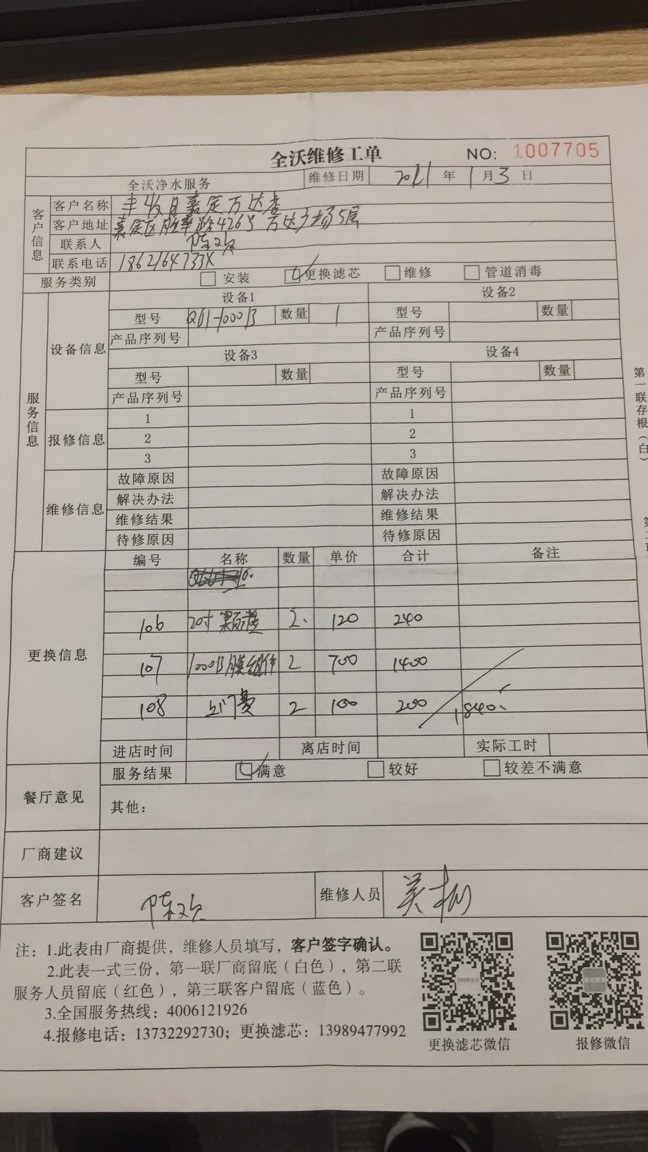 全沃维修工单 NO: 1007705
全沃净水服务 维修日期 2021 年 1 月 3 日
客户信息
客户名称 丰收日嘉定万达店
客户地址 嘉定区胜辛路426号万达广场5层
联系人 陈欢
联系电话 1862164733X
服务类别 安装 更换滤芯 维修 管道消毒
服务信息
设备信息
设备1 设备2
型号 数量 1 型号 数量
产品序列号 产品序列号
设备3 设备4
型号 数量 型号 数量
产品序列号 产品序列号
报修信息
1 1
2 2
3 3
维修信息
故障原因 故障原因
解决办法 解决办法
维修结果 维修结果
待修原因 待修原因
更换信息
编号 名称 数量 单价 合计 备注
106 20寸 2 120 240
107 1000B膜组件 2 700 1400
108 上门费 2 100 200
1840
进店时间 离店时间 实际工时
餐厅意见
服务结果 满意 较好 较差不满意
其他：
厂商建议
客户签名 陈欢 维修人员
注：1.此表由厂商提供，维修人员填写，客户签字确认。
2.此表一式三份，第一联厂商留底（白色），第二联
服务人员留底（红色），第三联客户留底（蓝色）。
3.全国服务热线：4006121926
4.报修电话：13732292730；更换滤芯：13989477992
更换滤芯微信 报修微信
第一联存根（白